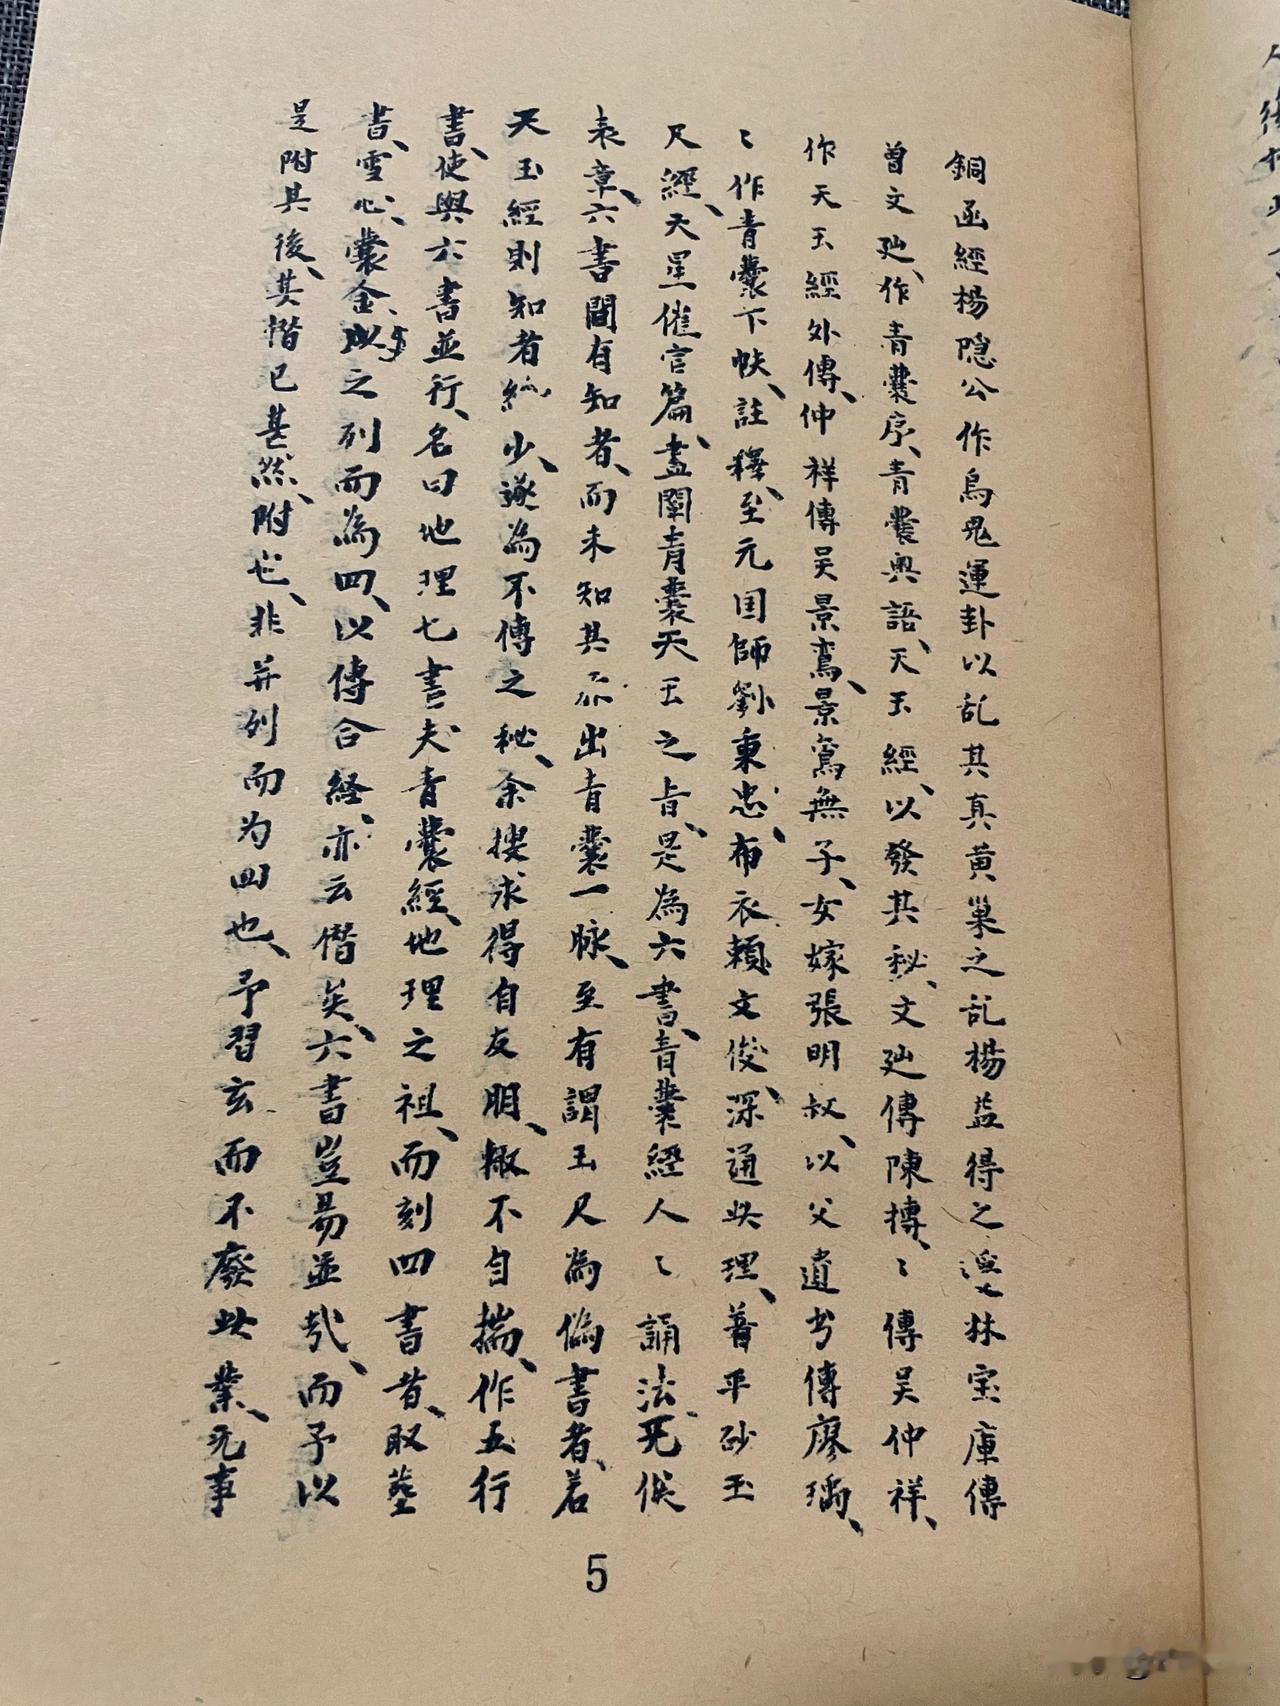 銅函經楊隠公作烏鬼運卦以乱其真黄巢之乱楊益得之還林宝庫傳
曾文辿、作青囊序、青囊奥語、天玉經、以發其秘、文辿傳陳摶、〻傳吴仲祥、
作天玉經外傳、仲祥傳吴景鸞、景鸞無子、女嫁張明叔、以父遺书傳廖瑀、
〻作青囊下帙、註釋、至元国師劉秉忠、布衣頼文俊、深通此理、著平砂玉
尺經、天星催官篇、盡闡青囊天玉之旨、是為六書、青囊經人〻誦法、死俟
表章、六書間有知者、而未知其所出青囊一脉、至有謂玉尺為偽書者、若
天玉經則知者絶少、遂為不傳之秘、余搜求得自友朋、輙不自揣、作五行
書、使與六書並行、名曰地理七書夫青囊經、地理之祖、而刻四書昔、取塟
書、雪心、囊金、以之列而為四、以傳合経、亦云僭矣、六書豈易並哉、而予以
是附其後、其僭已甚、然附也、非并列而为四也、予習玄而不廢此業、元事
5